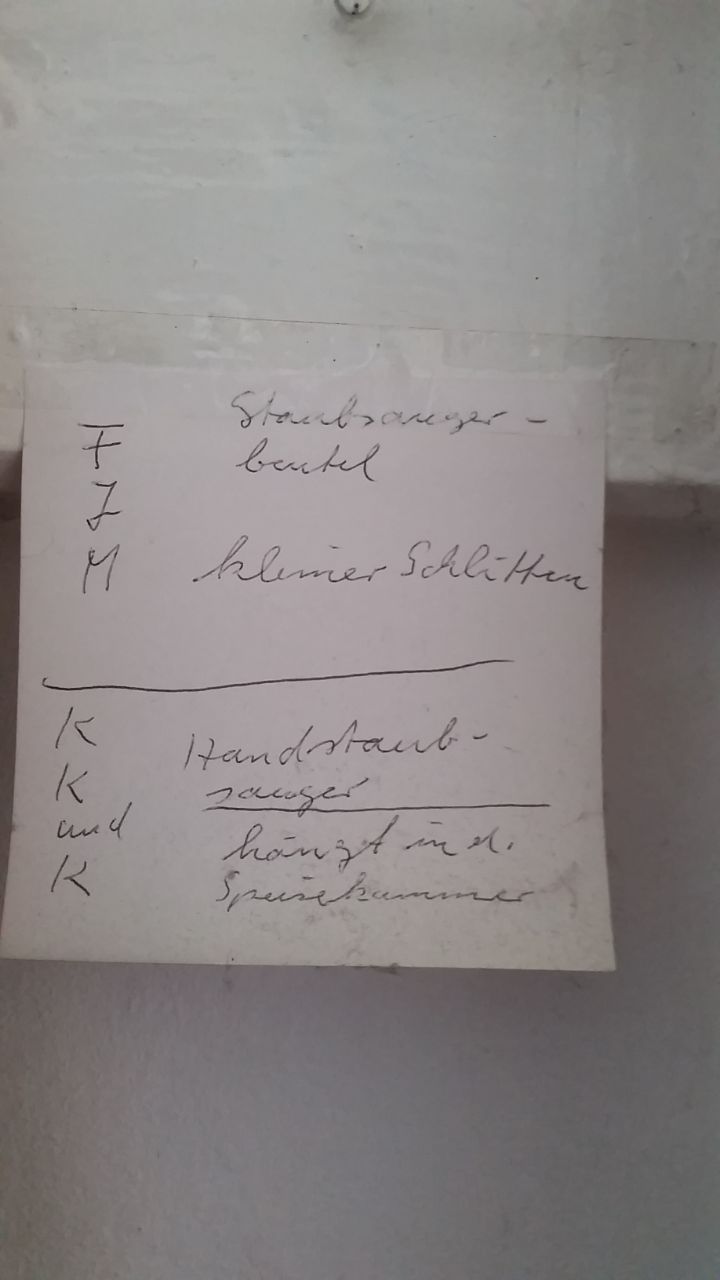 F Staubsauger-
beutel
J
M kleiner Schlitten
K Handstaub-
K sauger
und hängt in d.
K Speisekammer